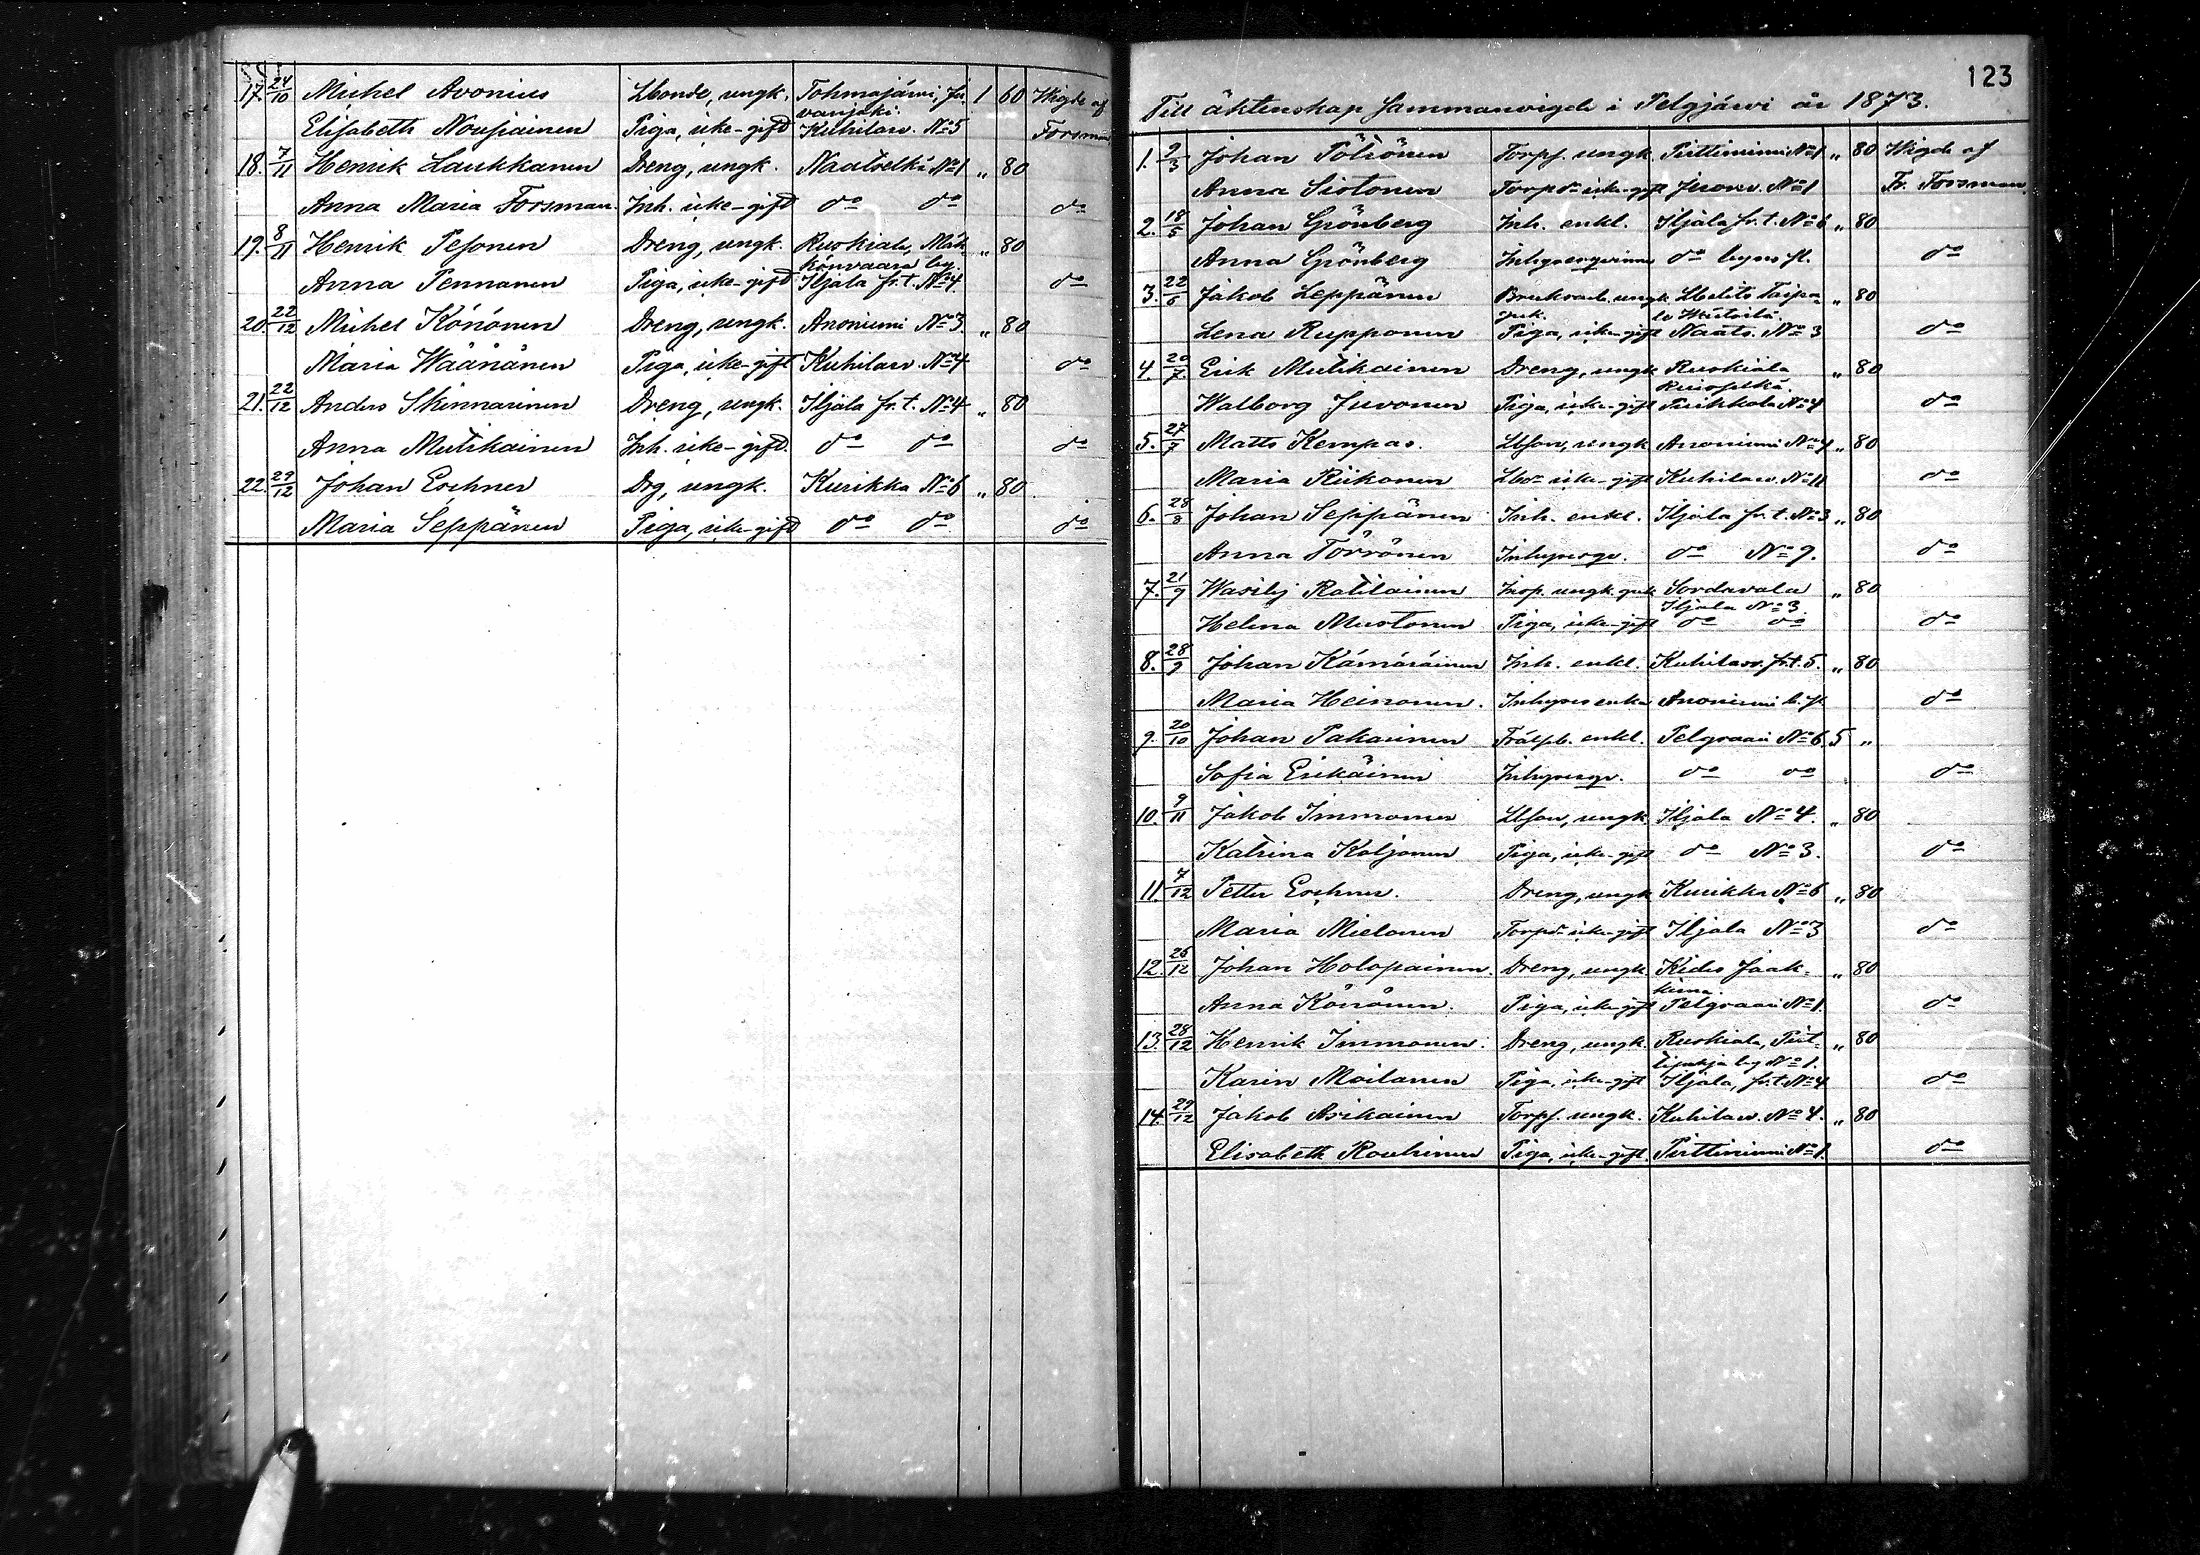 17. 24/10 Michel Avonius Lbonde, ungk. Tohmajärvi, Ju- 1 60 Wigde af
vanjoki.
Elisabeth Nousiainen Piga, icke-gift Kuhilav. No 5 Forsman
18. 7/11 Henrik Laukkanen Dreng, ungk. Naatselkä No 1 „ 80
Anna Maria Forsman. Inh. icke-gift do do do
19. 8/11 Henrik Pesonen Dreng, ungk. Ruskiala, Mat- „ 80
könvaara by.
Anna Pennanen Piga, icke-gift Iljala fr.t. No 4. do
20. 22/12 Michel Könönen Dreng, ungk. Anoniemi No 3 „ 80
Maria Wäänänen Piga, icke-gift Kuhilav. No 4 do
21. 22/12 Anders Skinnarinen Dreng, ungk. Iljala fr.t. No 4 „ 80
Anna Mutikainen Inh. icke-gift. do do do
22. 29/12 Johan Eschner Drg, ungk. Kurikka No 6 „ 80
Maria Seppänen Piga, icke-gift do do do
123
Till äktenskap sammanvigde i Pelgjärvi år 1873.
1. 9/3 Johan Pötrönen Torps. ungk. Pirttiniemi No 1 „ 80 Wigde af
Anna Siotonen Torpdr icke-gift Juvov. No 1 Fr. Forsman.
2. 18/5 Johan Grönberg Inh. enkl. Iljala fr.t. No 6 „ 80
Anna Grönberg Inhysesqvinna do byns fl. do
3. 22/6 Jakob Leppänen Bruksarb. ungk. Libelits Taipa- „ 80
le Wärtsilä.
Lena Rupponen Piga, icke-gift Naats. No 3 do
4. 20/7 Erik Mutikainen Dreng, ungk Ruskiala „ 80
Kuusselkä.
Walborg Juvonen Piga, icke-gift Puikkola No 4 do
5. 27/7 Matts Kempas. Lbson, ungk Anoniemi No 4 „ 80
Maria Riikonen Lbdr icke-gift Kuhilav. No 11 do
6. 28/8 Johan Seppänen Inh. enkl. Iljala fr.t. No 3 „ 80
Anna Törrönen Inhysesqv. do No 9. do
7. 21/9 Wasilij Ratilainen Insp. ungk. grek Sordavala „ 80
Iljala No 3.
Helena Mustonen Piga, icke-gift do do do
8. 28/9 Johan Kämäräinen Inh. enkl. Kuhilav. fr.t. 5. „ 80
Maria Heinonen. Inhyses enka Anoniemi b. fl. do
9. 20/10 Johan Pakarinen Frälsb. enkl. Pelgraari No 6. 5 „
Sofia Erikäinen Inhysesqv. do do do
10. 9/11 Jakob Immonen Lbson, ungk. Iljala No 4. „ 80
Katrina Koljonen Piga, icke-gift do No 3. do
11. 7/12 Petter Eschner. Dreng, ungk Kurikka No 6 „ 80
Maria Mielonen Torpdr icke-gift Iljala No 3 do
12. 26/12 Johan Holopainen. Dreng, ungk Kides Jaak- „ 80
kima.
Anna Könönen. Piga, icke-gift Pelgraari No 1. do
13. 28/12 Henrik Immonen. Dreng, ungk. Ruskiala, Pirt- „ 80
tipohja by No 1.
Karin Moilanen Piga, icke-gift Iljala, fr.t. No 4 do
14. 29/12 Jakob Asikainen Torps. ungk. Kuhilav. No 4. „ 80
Elisabeth Rouhinen Piga, icke-gift. Pirttiniemi No 1. do